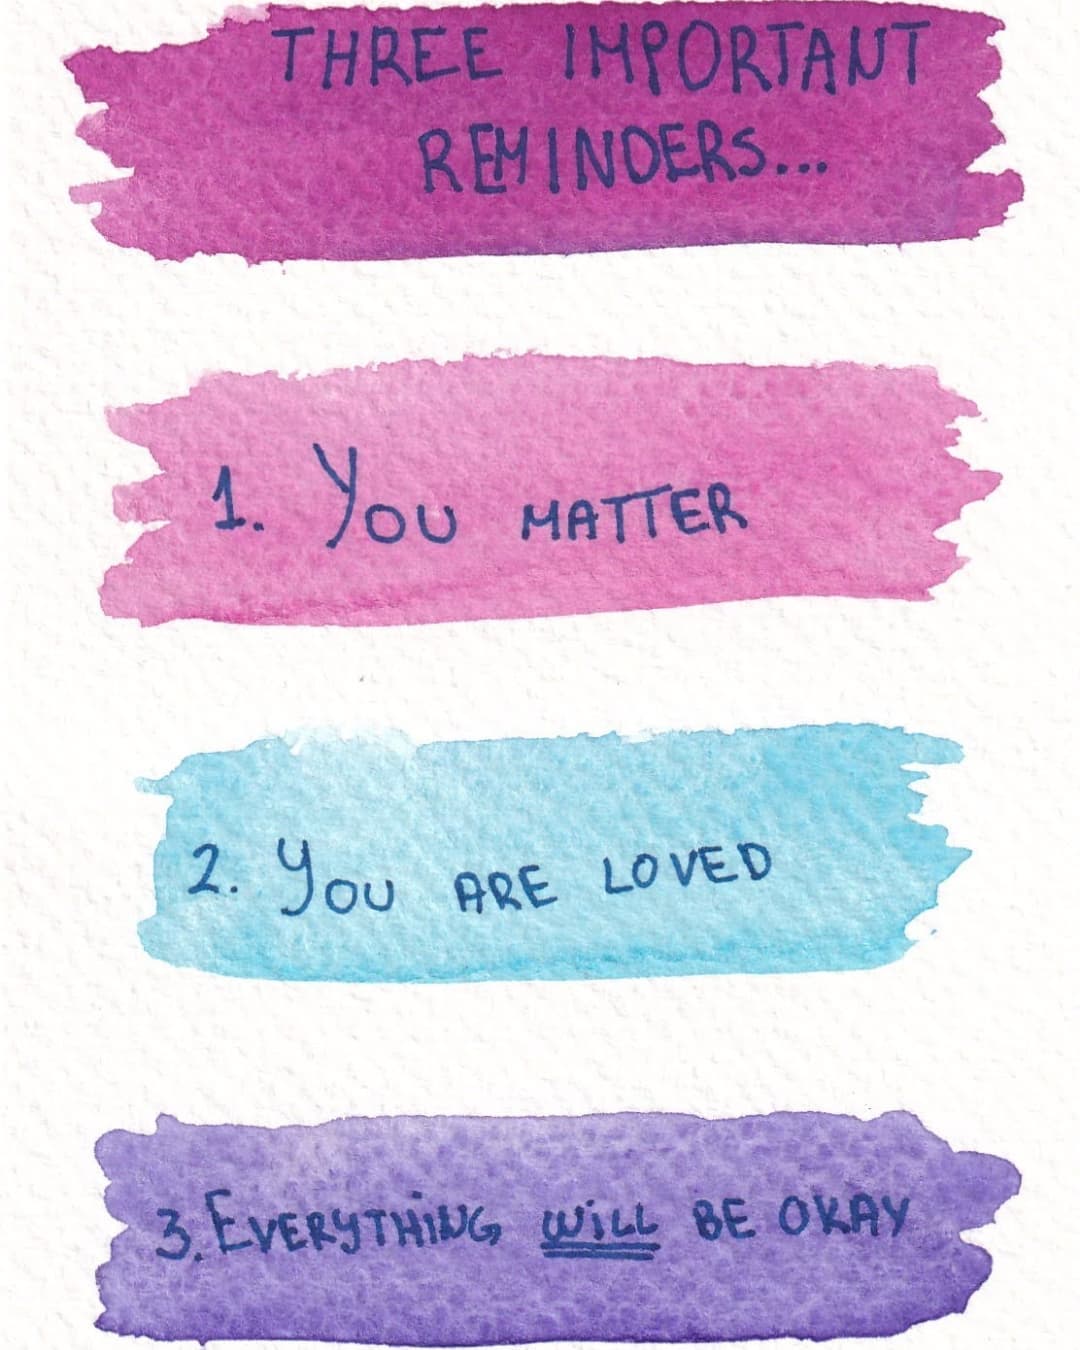 THREE IMPORTANT
REMINDERS...
1. YOU MATTER
2. YOU ARE LOVED
3. EVERYTHING WILL BE OKAY